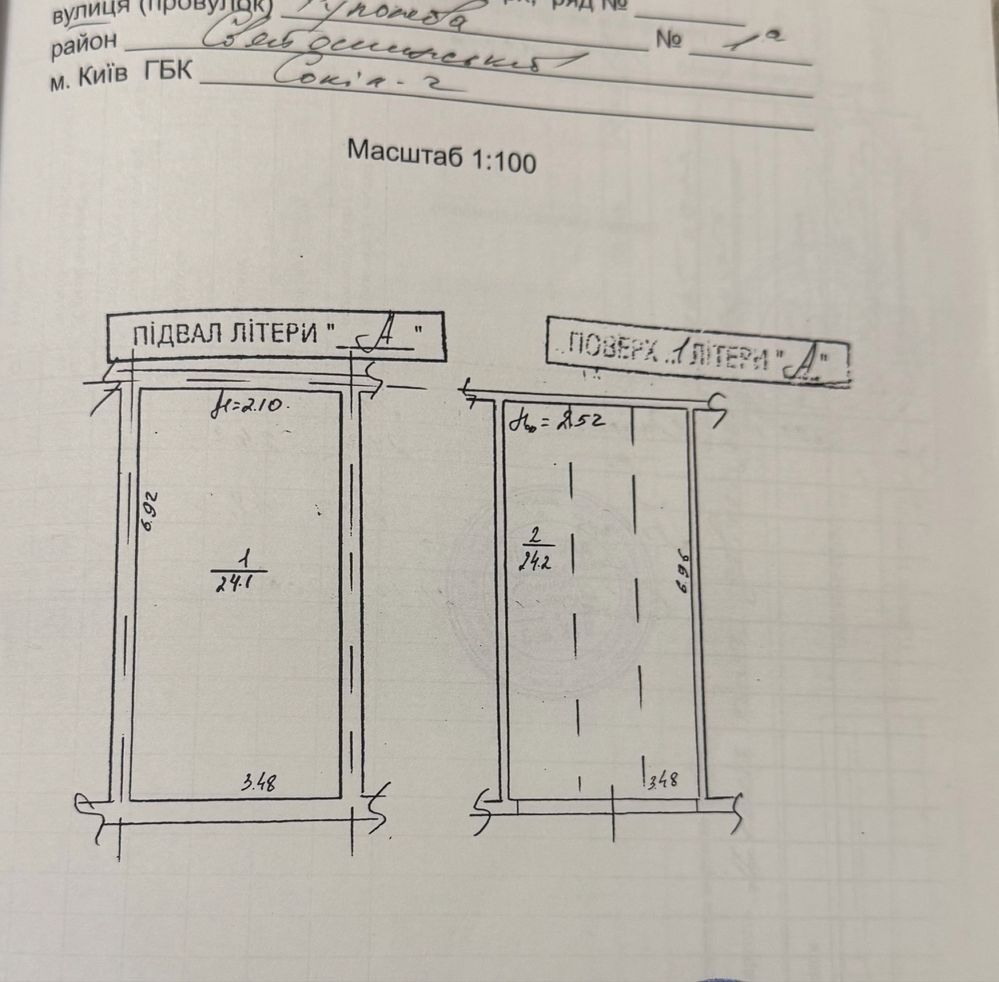 вулиця (провулок) Туполєва ряд №
район Святошинський № 1а
м. Київ ГБК Сокіл-2
Масштаб 1:100
ПІДВАЛ ЛІТЕРИ "А"
ПОВЕРХ 1 ЛІТЕРИ "А"
H=2.10
= 2.52
6.92
2
24.2
1
24.1
6.96
3.48
3.48